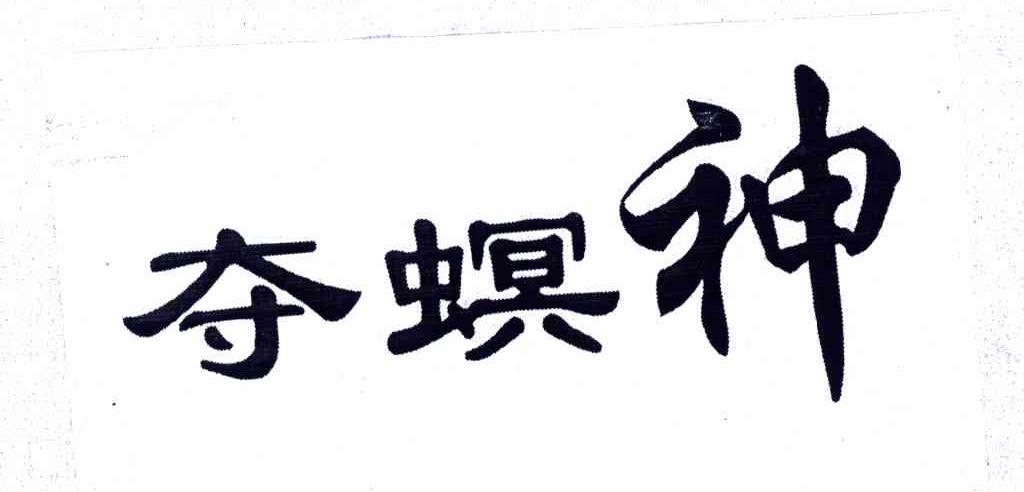 夺螟神